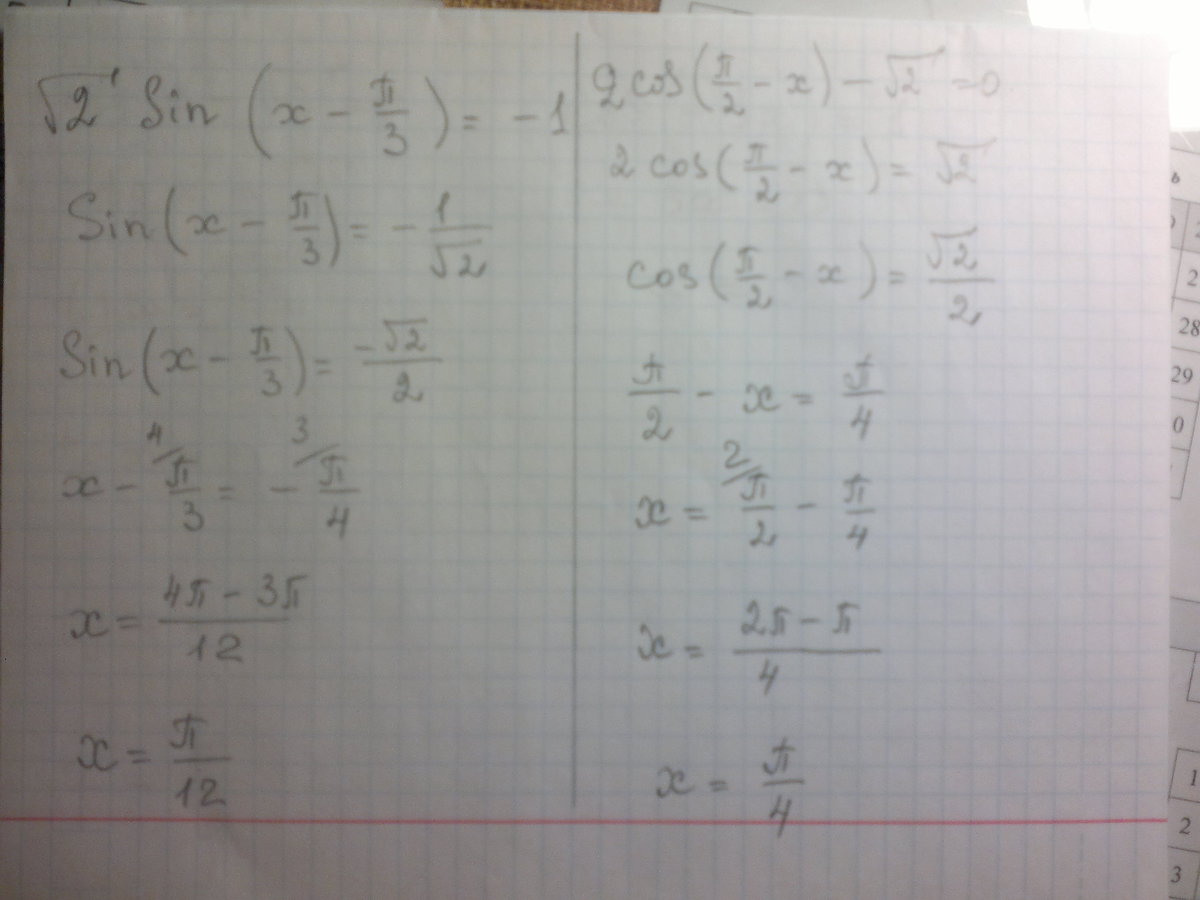 √2 Sin (x - π/3) = -1
Sin(x - π/3) = - 1/√2
Sin(x - π/3) = -√2/2
4/ 3/
x - π/3 = - π/4
x = (4π - 3π)/12
x = π/12
2 cos(π/2 - x) - √2 = 0
2 cos(π/2 - x) = √2
cos(π/2 - x) = √2/2
π/2 - x = π/4
2/
x = π/2 - π/4
x = (2π - π)/4
x = π/4
2
28
29
0
1
2
3